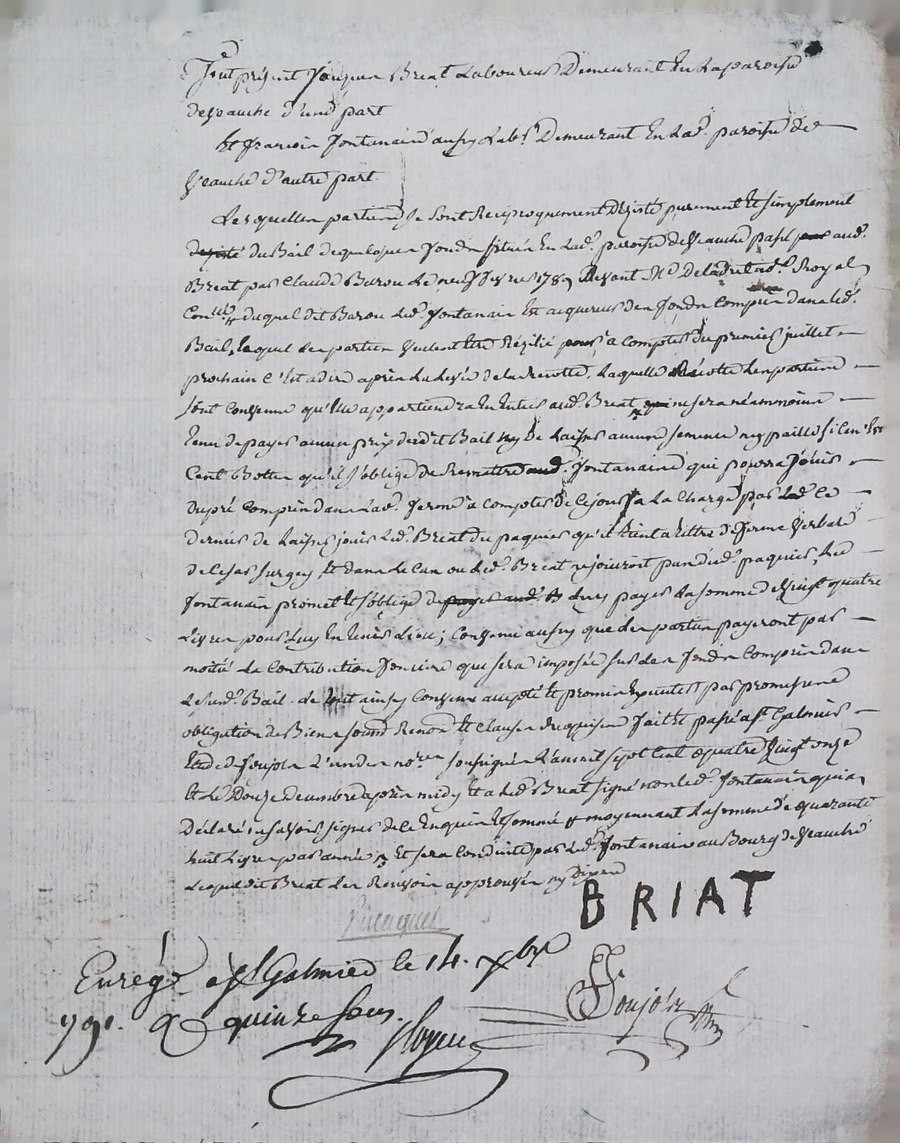 Fut présent Jacques Briat Laboureur Demeurant En La paroisse
de Veauche d'une part
Et francois fontanair d'ausy Lab.r Demeurant En Lad. paroisse de
Veauche d'autre part
Lesquelles parties se sont Reciproquement Désisté purement Et simplement
du Bail de quelques fonds situés En Lad. paroisse de Veauche passé aud.
Briat par Claude Barou Le neuf 1789 devant Royal
duquel dit Barou Led. fontanair Est acquereur des fonds Compris dans led.
Bail, Lequel Les parties veulent Etre Résilié à Compter du premier juillet
prochain C'Est a dire après La Levée de La recolte, Laquelle Récolte Les parties
sont Convenu qu'Elle appartiendra En Entier aud. Briat ne sera néanmoins
tenu de payer aucun prix dudit Bail ny De Laisser aucune semence ny paille si Ce n'Est
Cent Bottes qu'il s'oblige de Remettre aud. fontanair qui pourra jouir
du pré Compris dans Lad. à Compter de Ce jour a La Charge par Ce
dernier de Laisser jouir Led. Briat du paquier qu'il tient a tittre de ferme Verbale
de Et dans Le Cas ou Led. Briat ne jouiroit pas dud. paquier, Led
fontanair promet Et s'oblige de payer La somme de Vingt quatre
Livres pour Luy En tenir Lieu; Convenu aussy que Les parties payeront par
moitié La Contribution fonciere qui sera imposée sur Les fonds Compris dans
Le sud. Bail. Le tout ainsy Convenu accepté Et promis Executer par promesse
obligation de Biens Renon Et Clauses Requises fait Et passé a St Galmier
Etude de foujols L'un des no.res soussignés L'an mil sept Cent quatre Vingt onze
Et Le Douze decembre après midy Et a Led. Briat signé non led. fontanair qui a
Déclaré ne savoir signer de ce Enquis Et sommé moyennant La somme de quarante
huit Livres par année Et sera Conduite par Led. fontanair au Bourg de Veauche
Lequel dit Briat Les Renvois approuvés
BRIAT
Enregé à St Galmier le 14. Xbre
791. R quinze sous.
foujols